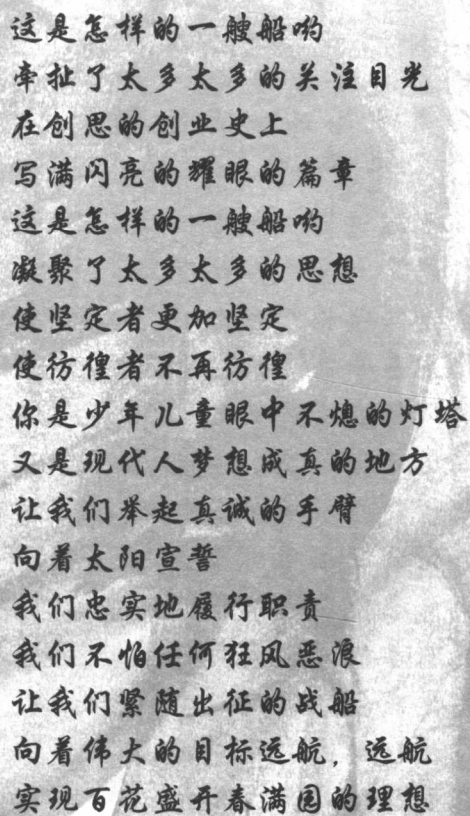 这是怎样的一艘船哟
牵扯了太多太多的关注目光
在创思的创业史上
写满闪亮的耀眼的篇章
这是怎样的一艘船哟
凝聚了太多太多的思想
使坚定者更加坚定
使彷徨者不再彷徨
你是少年儿童眼中不熄的灯塔
又是现代人梦想成真的地方
让我们举起真诚的手臂
向着太阳宣誓
我们忠实地履行职责
我们不怕任何狂风恶浪
让我们紧随出征的战船
向着伟大的目标远航，远航
实现百花盛开春满园的理想